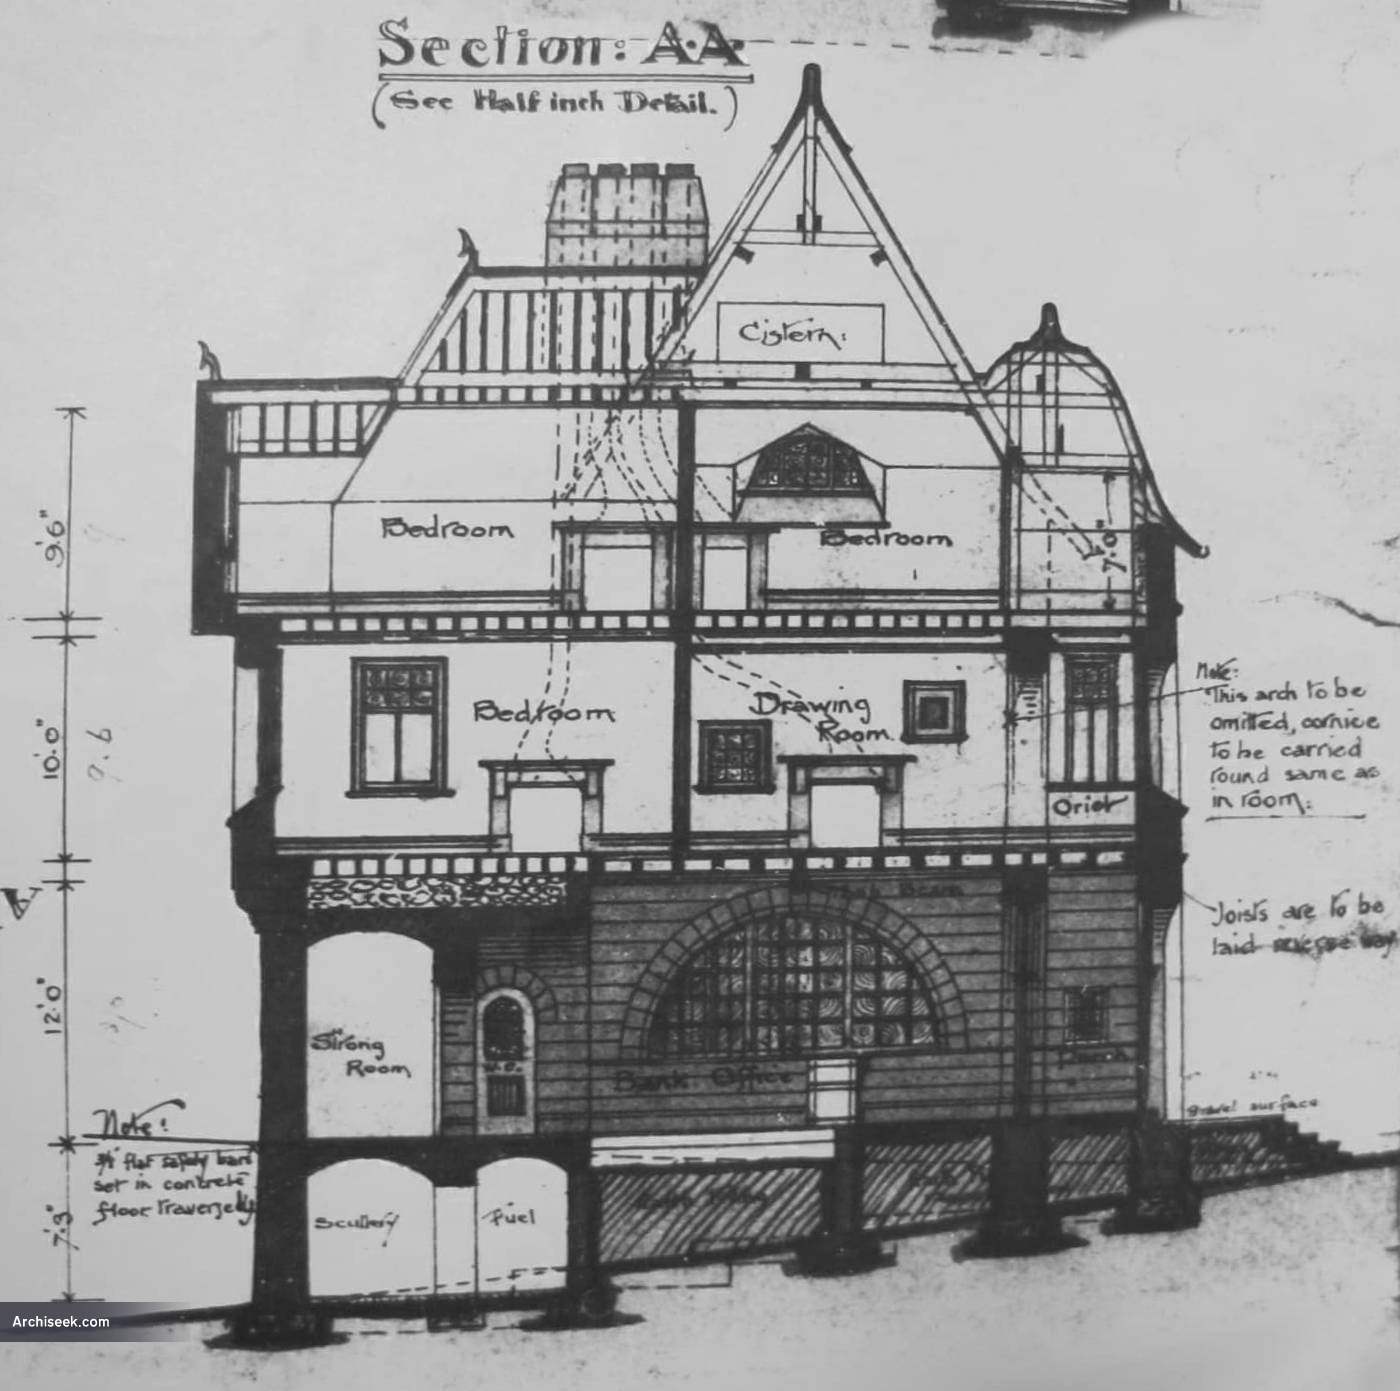 Section: A·A
(See Half inch Detail.)
Cistern:
Bedroom
Bedroom
9'.6"
7'.0"
Bedroom
Drawing
Room.
10'.0"
9.6
Note:
This arch to be
omitted, cornice
to be carried
round same as
in room:
Oriel
Joists are to be
laid reverse way
12'.0"
Strong
Room
W.C.
Bank Office
Porch
gravel surface
Note:
3/4 flat safety bars
set in concrete
floor
7'.3"
Scullery
Fuel
Archiseek.com